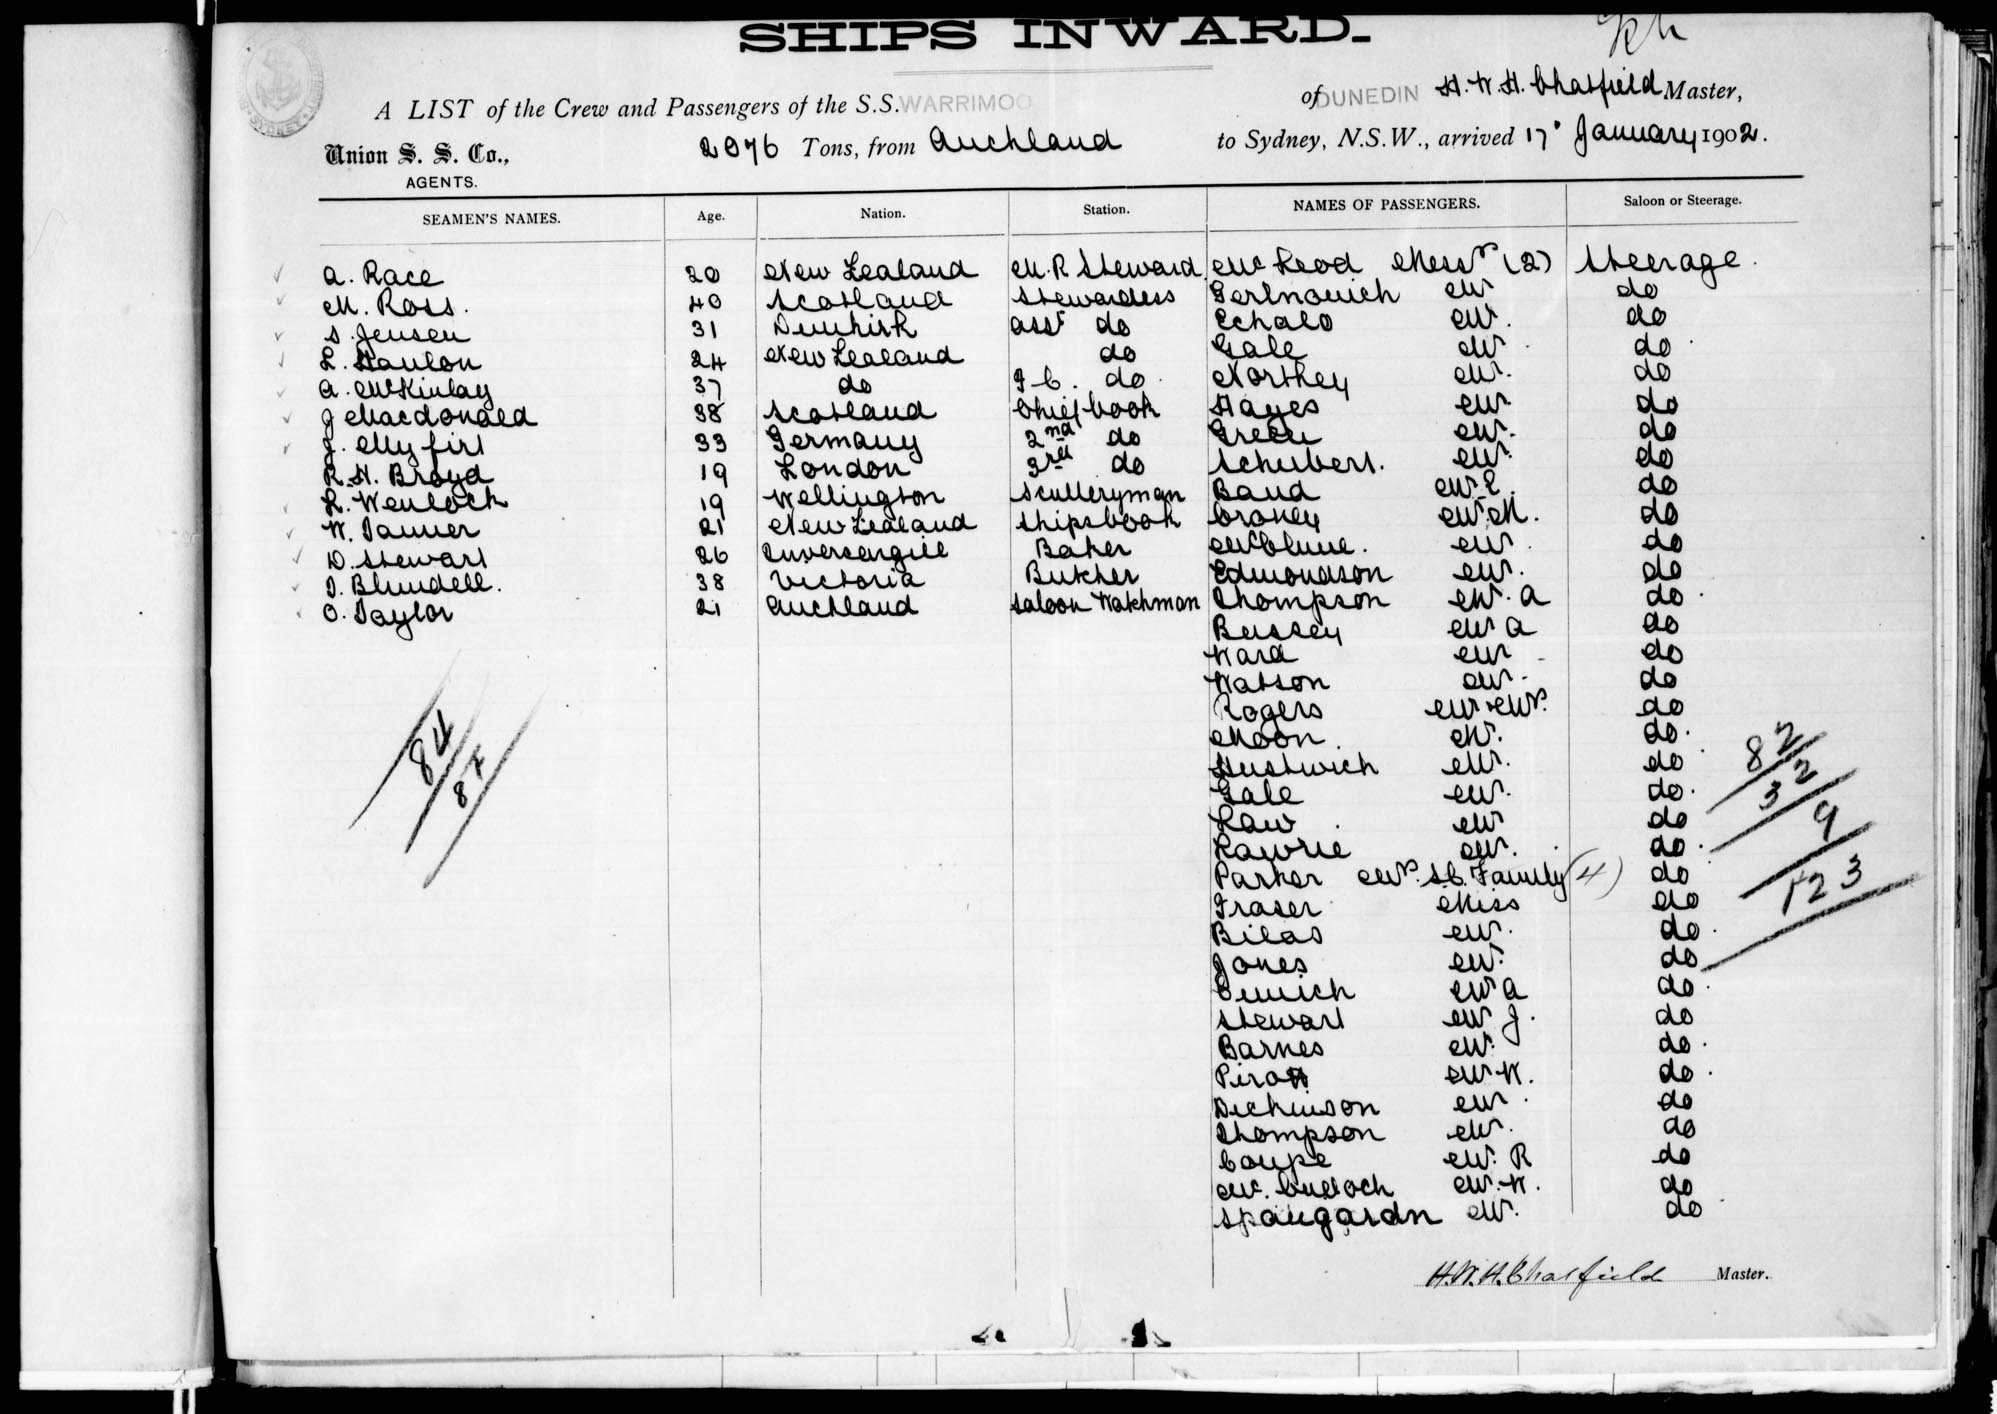 SHIPS INWARD.
A LIST of the Crew and Passengers of the S.S. WARRIMOO of DUNEDIN H. W. H. Chatfield Master,
Union S. S. Co., AGENTS. 2076 Tons, from Auckland to Sydney, N.S.W., arrived 17 January 1902.
SEAMEN'S NAMES. Age. Nation. Station. NAMES OF PASSENGERS. Saloon or Steerage.
A. Race 20 New Zealand M.R Steward McLeod Messrs (2) Steerage.
M. Ross. 40 Scotland Stewardess Mr do
S. Jensen 31 asst do Echalo Mr. do
L. Hanlon 24 New Zealand do Gale Mr do
A. McKinlay 37 do F.C. do Northey Mr. do
J Macdonald 38 Scotland Chief Cook Hayes Mr do
J. 33 Germany 2nd do Green Mr. do
R. H. Broyd 19 London 3rd do Schubert. Mr. do
L. Wenlock 19 Wellington Sculleryman Band Mr. E. do
W. Tanner 21 New Zealand Ships Cook Croney Mr. M. do
D. Stewart 26 Invercargill Baker McClune. Mr do
J. Blundell. 38 Victoria Butcher Edmondson Mr. do
O. Taylor 21 Auckland Saloon Watchman Thompson Mr. A do
Bussey Mr A do
Ward Mr do
Watson Mr. do
Rogers Mr & Mrs. do
Moon. Mr. do.
Hustwich Mr. do
Gale Mr. do.
Law Mr do
Lawrie Mr. do.
Parker Mrs. & Family (4) do
Fraser Miss do
Bilas Mr. do.
Jones Mr. do
Mr A do.
Stewart Mr J. do
Barnes Mr. do.
Mr W. do.
Dickinson Mr. do
Thompson Mr. do
Coupe Mr. R do
McCulloch Mr. W. do
Spaugardn Mr. do
84
87
82
32
9
123
H.W.H. Chatfield Master.